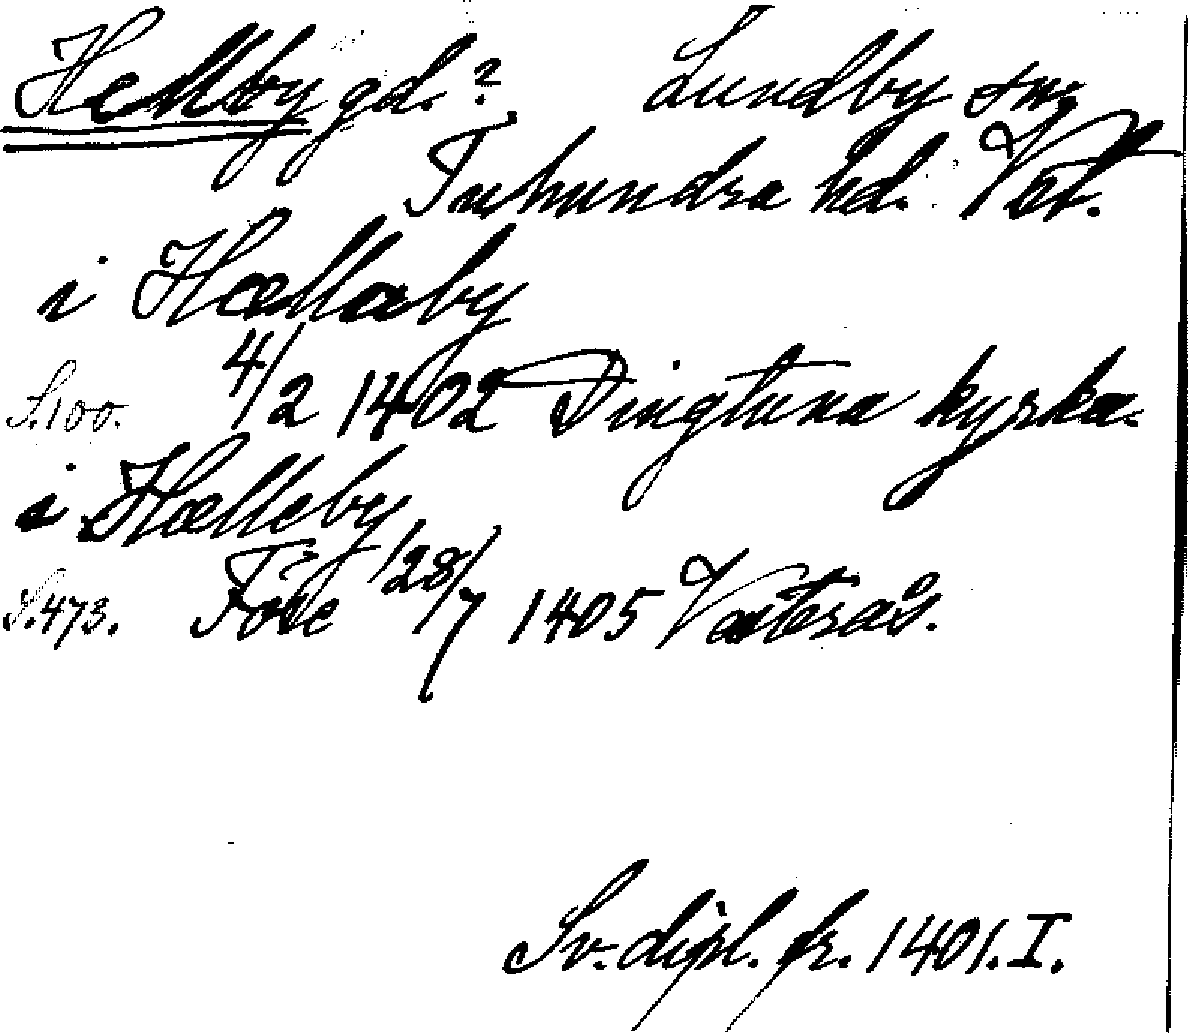 Hellby gd.? Lundby sn.
Tuhundra hd. Vstl.
i Hællæby
S.100. 4/2 1402 Dingtuna kyrka.
i Hælleby
S.473. Före 28/7 1405 Västerås.
Sv. dipl. fr. 1401. I.